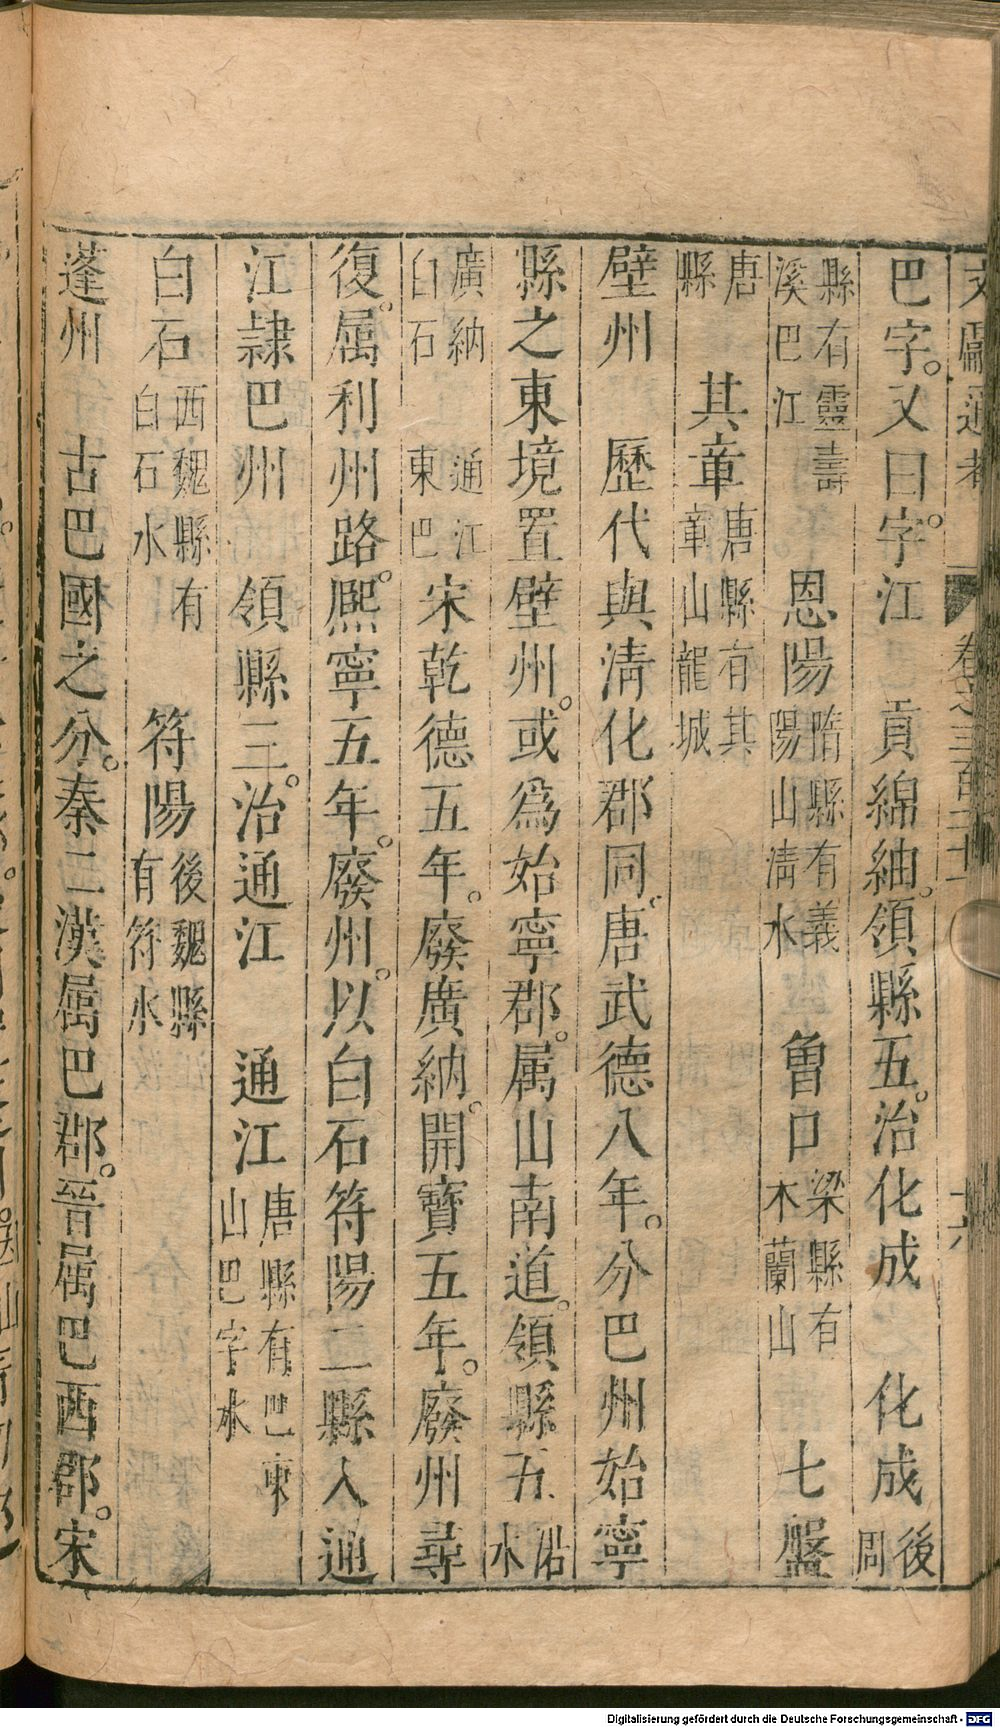 文獻通考 卷之三百二十一 十六
巴字。又曰字。江 貢綿紬。領縣五。治化成 化成後周
縣有靈壽溪巴江 恩陽隋縣有義陽山清水 曾口梁縣有木蘭山 七盤
唐縣 其章唐縣有其章山龍城
壁州 歷代與清化郡同。唐武德八年。分巴州始寧
縣之東境置壁州。或爲始寧郡。属山南道。領縣五沿水
廣納白石 通江東巴 宋乾德五年。廢廣納。開寶五年。廢州尋
復。属利州路。熈寧五年。廢州。以白石符陽二縣入通
江隷巴州 領縣三。治通江 通江唐縣有巴東山巴字水
白石西魏縣有白石水 符陽後魏縣有符水
蓬州 古巴國之分。秦二漢属巴郡。晉属巴西郡。宋
Digitalisierung gefördert durch die Deutsche Forschungsgemeinschaft - DFG